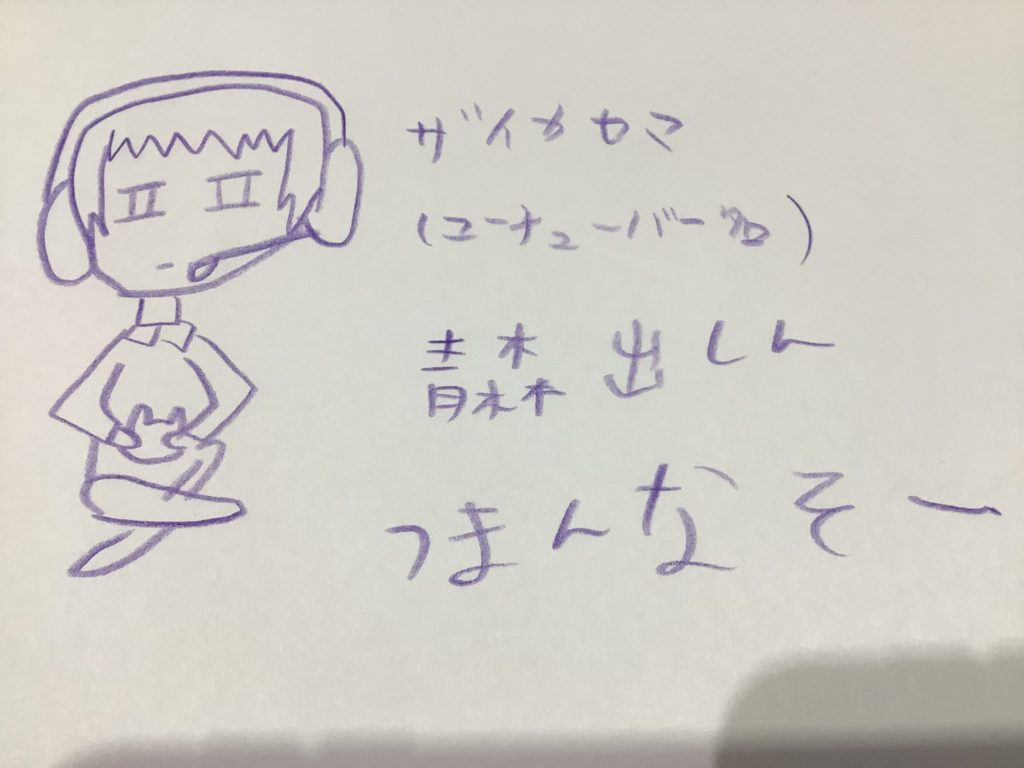 ザイカカマ
(ユーチューバー名)
青森出しん
つまんなそー